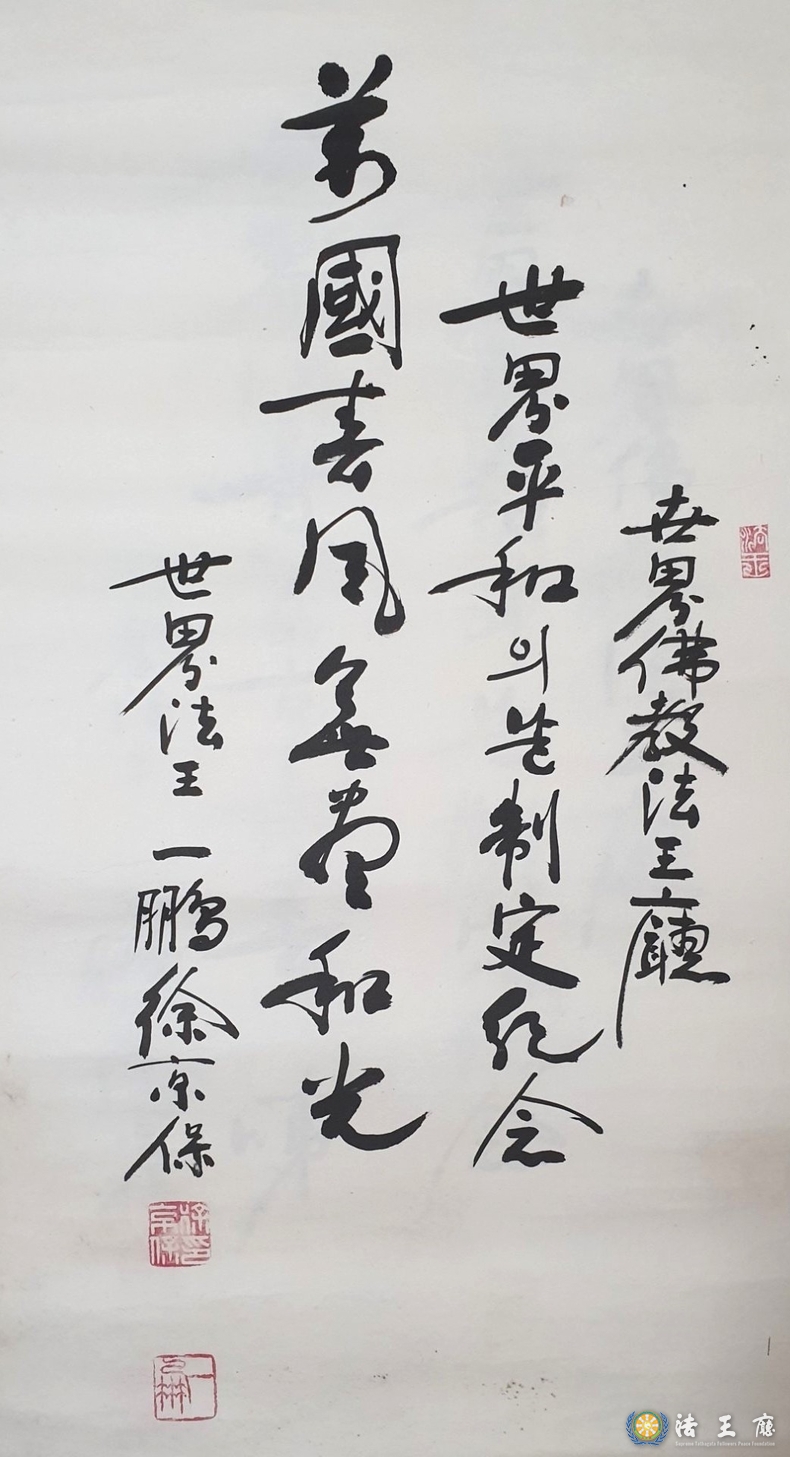 世界佛教法王廳
世界平和의날制定紀念
萬國春風無盡和光
世界法王 一鵬徐京保
法王
徐京保印
法王廳
Supreme Tathagata Followers Peace Foundation